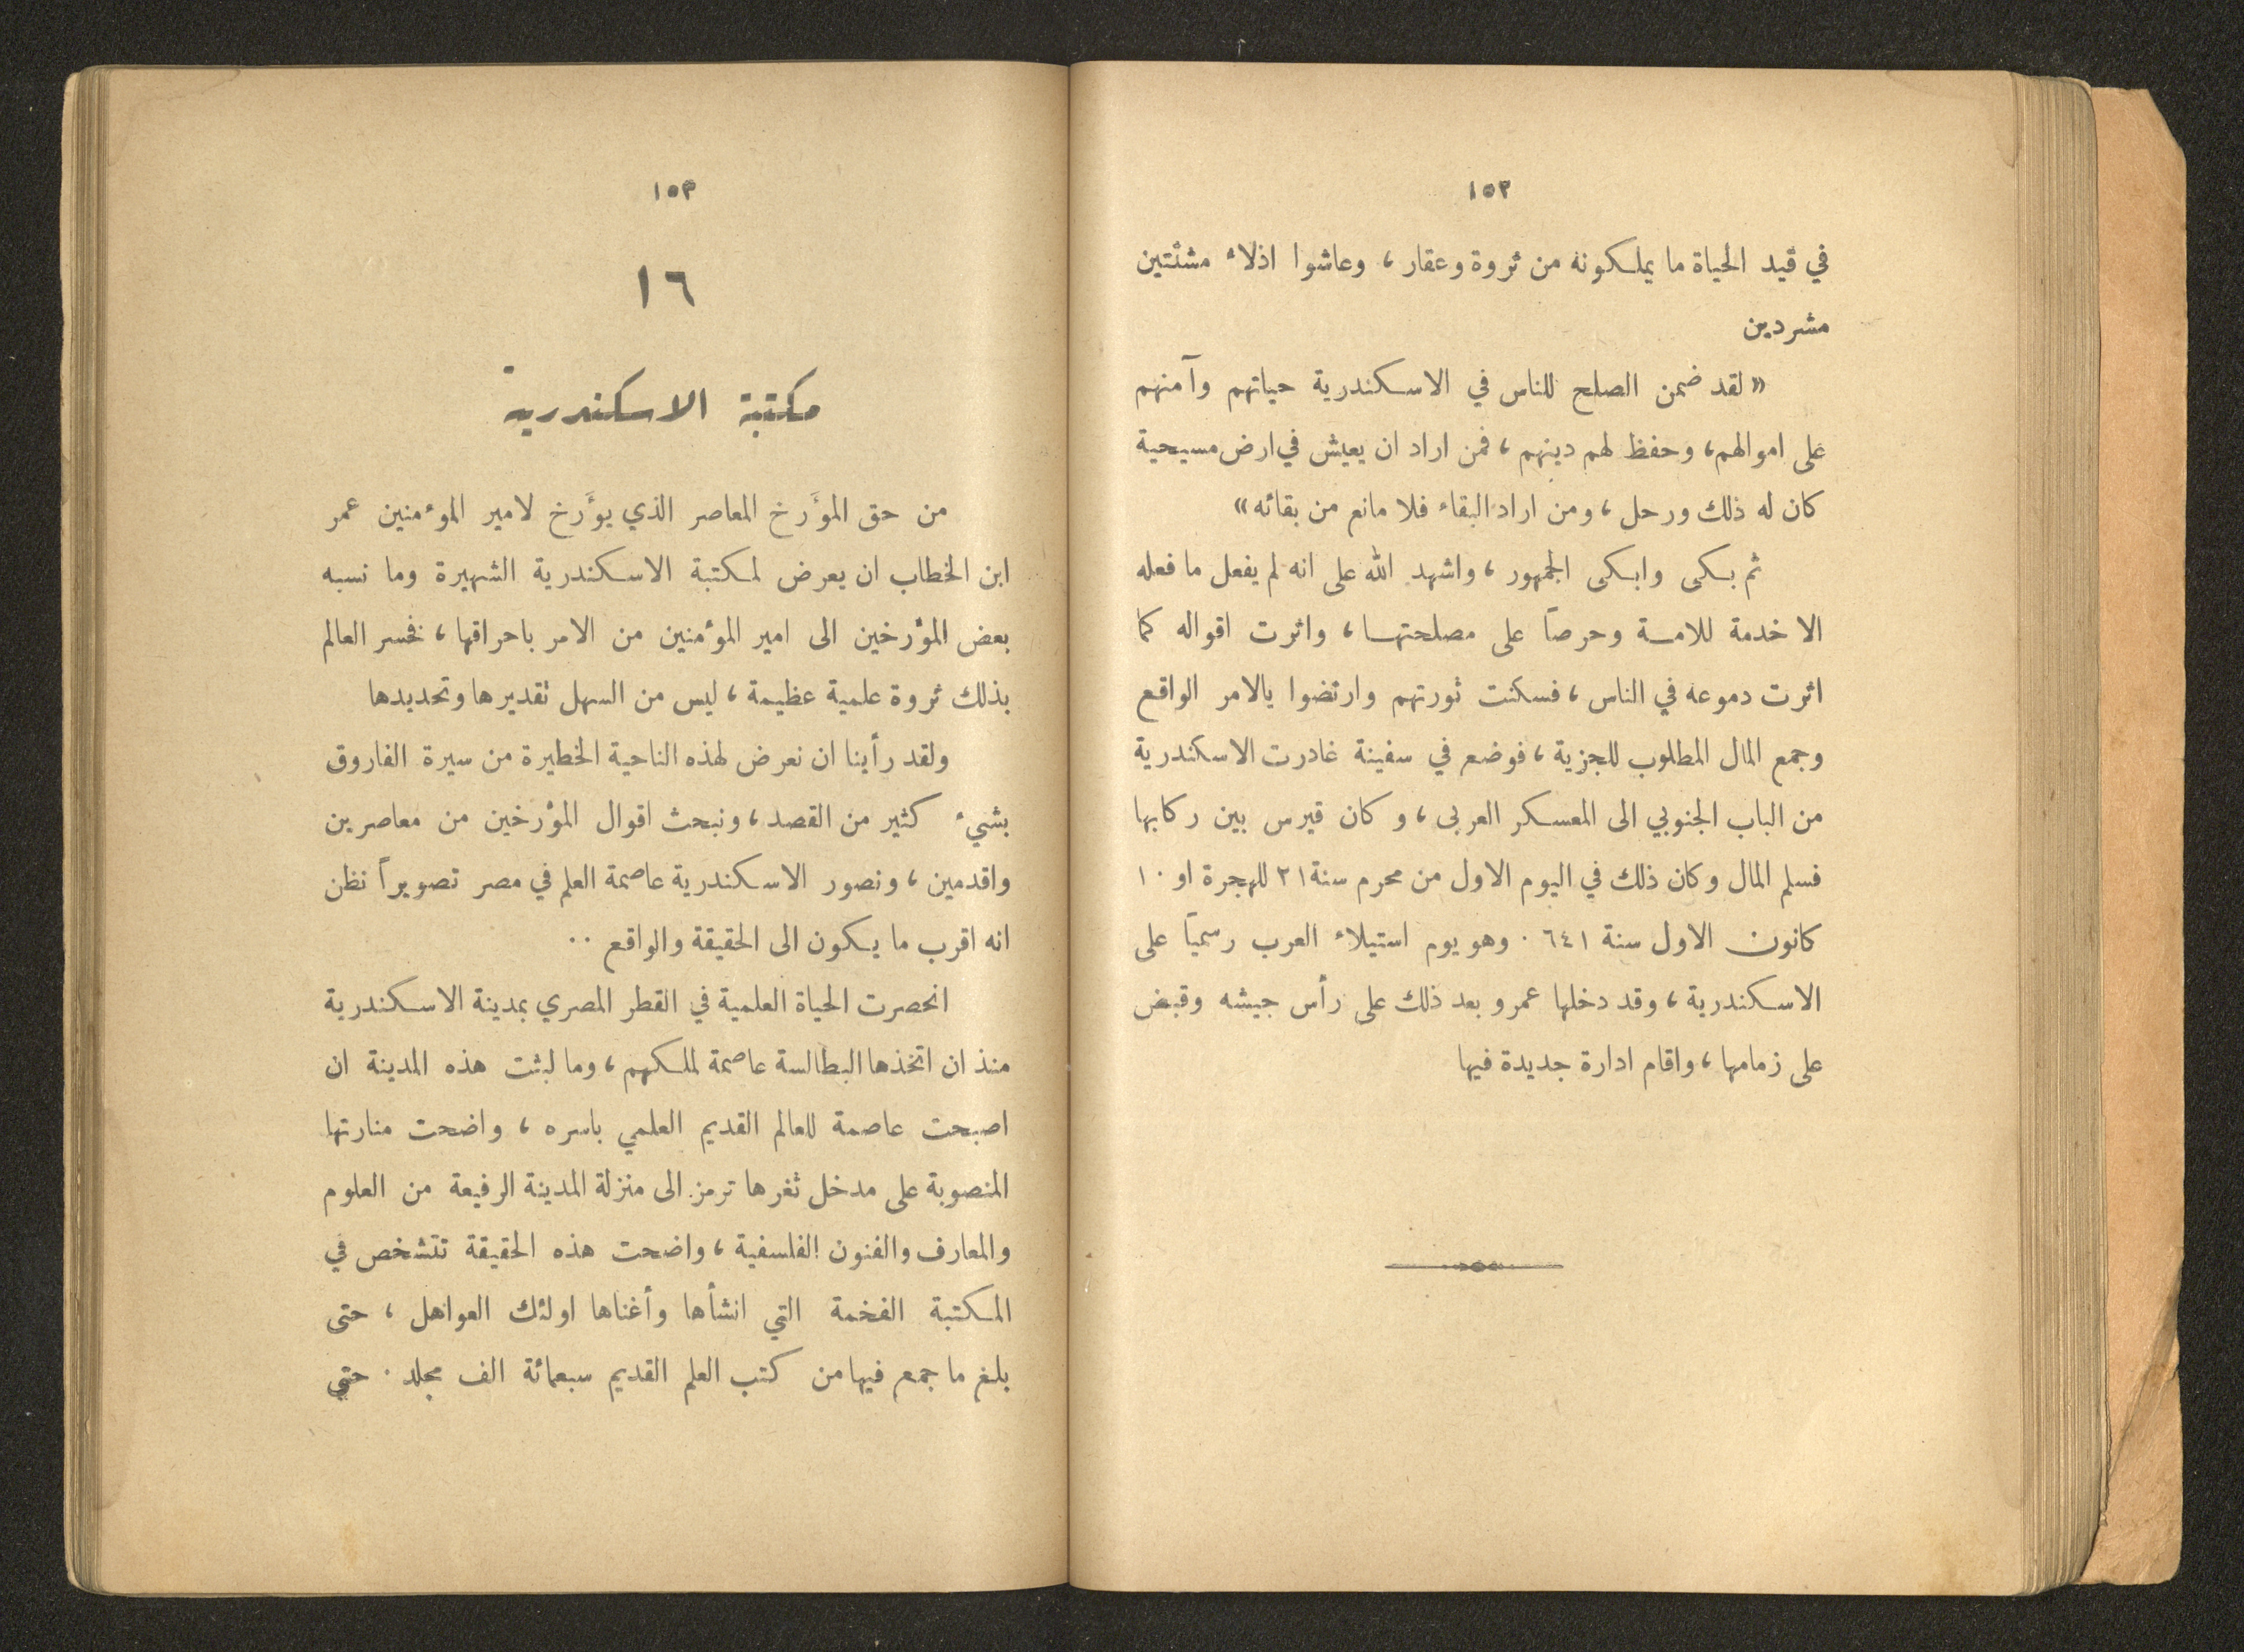 ١٥٢
في قيد الحياة ما يملكونه من ثروة وعقار، وعاشوا اذلاء مشتتين
مشردين
« لقد ضمن الصلح للناس في الاسكندرية حياتهم وآمنهم
على اموالهم، وحفظ لهم دينهم، فمن اراد ان يعيش في ارض مسيحية
كان له ذلك ورحل، ومن اراد البقاء فلا مانع من بقائه»
ثم بكى وابكى الجمهور، واشهد الله على انه لم يفعل ما فعله
الا خدمة للامة وحرصاً على مصلحتها، واثرت اقواله كما
اثرت دموعه في الناس، فسكنت ثورتهم وارتضوا بالامر الواقع
وجمع المال المطلوب للجزية، فوضع في سفينة غادرت الاسكندرية
من الباب الجنوبي الى المعسكر العربى، وكان قيرس بين ركابها
فسلم المال وكان ذلك في اليوم الاول من محرم سنة ٢١ للهجرة او ١٠
كانون الاول سنة ٦٤١ . وهو يوم استيلاء العرب رسمياً على
الاسكندرية، وقد دخلها عمرو بعد ذلك على رأس جيشه وقبض
على زمامها، واقام ادارة جديدة فيها
١٥٣
١٦
مكتبة الاسكندرية
من حق المؤَرخ المعاصر الذي يؤَرخ لامير الموءمنين عمر
ابن الخطاب ان يعرض لمكتبة الاسكندرية الشهيرة وما نسبه
بعض المؤرخين الى امير المؤمنين من الامر باحراقها، فخسر العالم
بذلك ثروة علمية عظيمة، ليس من السهل تقديرها وتحديدها
ولقد رأينا ان نعرض لهذه الناحية الخطيرة من سيرة الفاروق
بشيء كثير من القصد، ونبحث اقوال المؤرخين من معاصرين
واقدمين، ونصور الاسكندرية عاصمة العلم في مصر تصويراً نظن
انه اقرب ما يكون الى الحقيقة والواقع ..
انحصرت الحياة العلمية في القطر المصري بمدينة الاسكندرية
منذ ان اتخذها البطالسة عاصمة لملكهم، وما لبثت هذه المدينة ان
اصبحت عاصمة للعالم القديم العلمي باسره، واضحت منارتها
المنصوبة على مدخل ثغرها ترمز الى منزلة المدينة الرفيعة من العلوم
والمعارف والفنون الفلسفية، واضحت هذه الحقيقة تتشخص في
المكتبة الفخمة التي انشأها وأغناها اولئك العواهل، حتى
بلغ ما جمع فيها من كتب العلم القديم سبعمائة الف مجلد . حتى